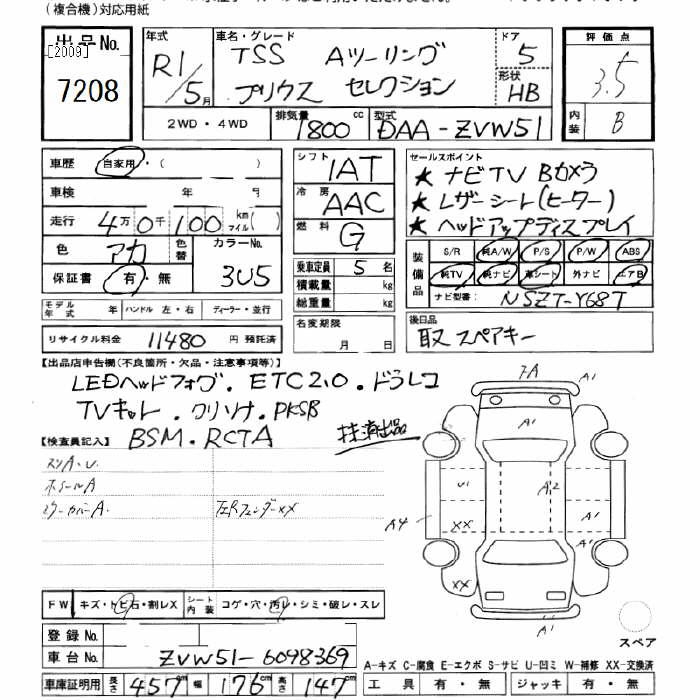 (複合機)対応用紙
出品No.
[2009]
7208
年式
R1/5月
車名・グレード
TSS Aツーリング
プリウス セレクション
ドア
5
形状
HB
評価点
3.5
内装
B
2WD・4WD
排気量
1800cc
型式
DAA-ZVW51
車歴 自家用・( )
車検 年 月
走行 4万0千100km マイル( )
色 アカ 色替 カラーNo. 3U5
保証書 有・無
モデル年式 年 ハンドル 左・右 ディーラー・並行
リサイクル料金 11480 円 預託済
シフト 1AT
冷房 AAC
燃料 G
乗車定員 5 名
積載量 kg
総重量 kg
名変期限
月 日
セールスポイント
★ ナビTV Bカメラ
★ レザーシート(ヒーター)
★ ヘッドアップディスプレイ
装備品
S/R 純A/W P/S P/W ABS
純TV 純ナビ 革シート 外ナビ エアB
ナビ型番: NSZT-Y68T
後日品
取又 スペアキー
【出品店申告欄(不良箇所・欠品・注意事項等)】
LEDヘッドフォグ・ETC2.0・ドラレコ
TVキット・クリソナ・PKSB
BSM・RCTA
【検査員記入】
スリA・U
ホイールA
ミラーカバーA
左Rフェンダーxx
7A
A1
A1
U1
A2
A1
A4
XX
A1
XX
A1
スペア
FW キズ・トビ石・割レX
シート内装 コゲ・穴・汚レ・シミ・破レ・スレ
登録No.
車台No. ZVW51-6098369
車庫証明用 長さ 457cm 幅 176cm 高さ 147cm
A-キズ C-腐食 E-エクボ S-サビ U-凹ミ W-補修 XX-交換済
工具 有・無 ジャッキ 有・無